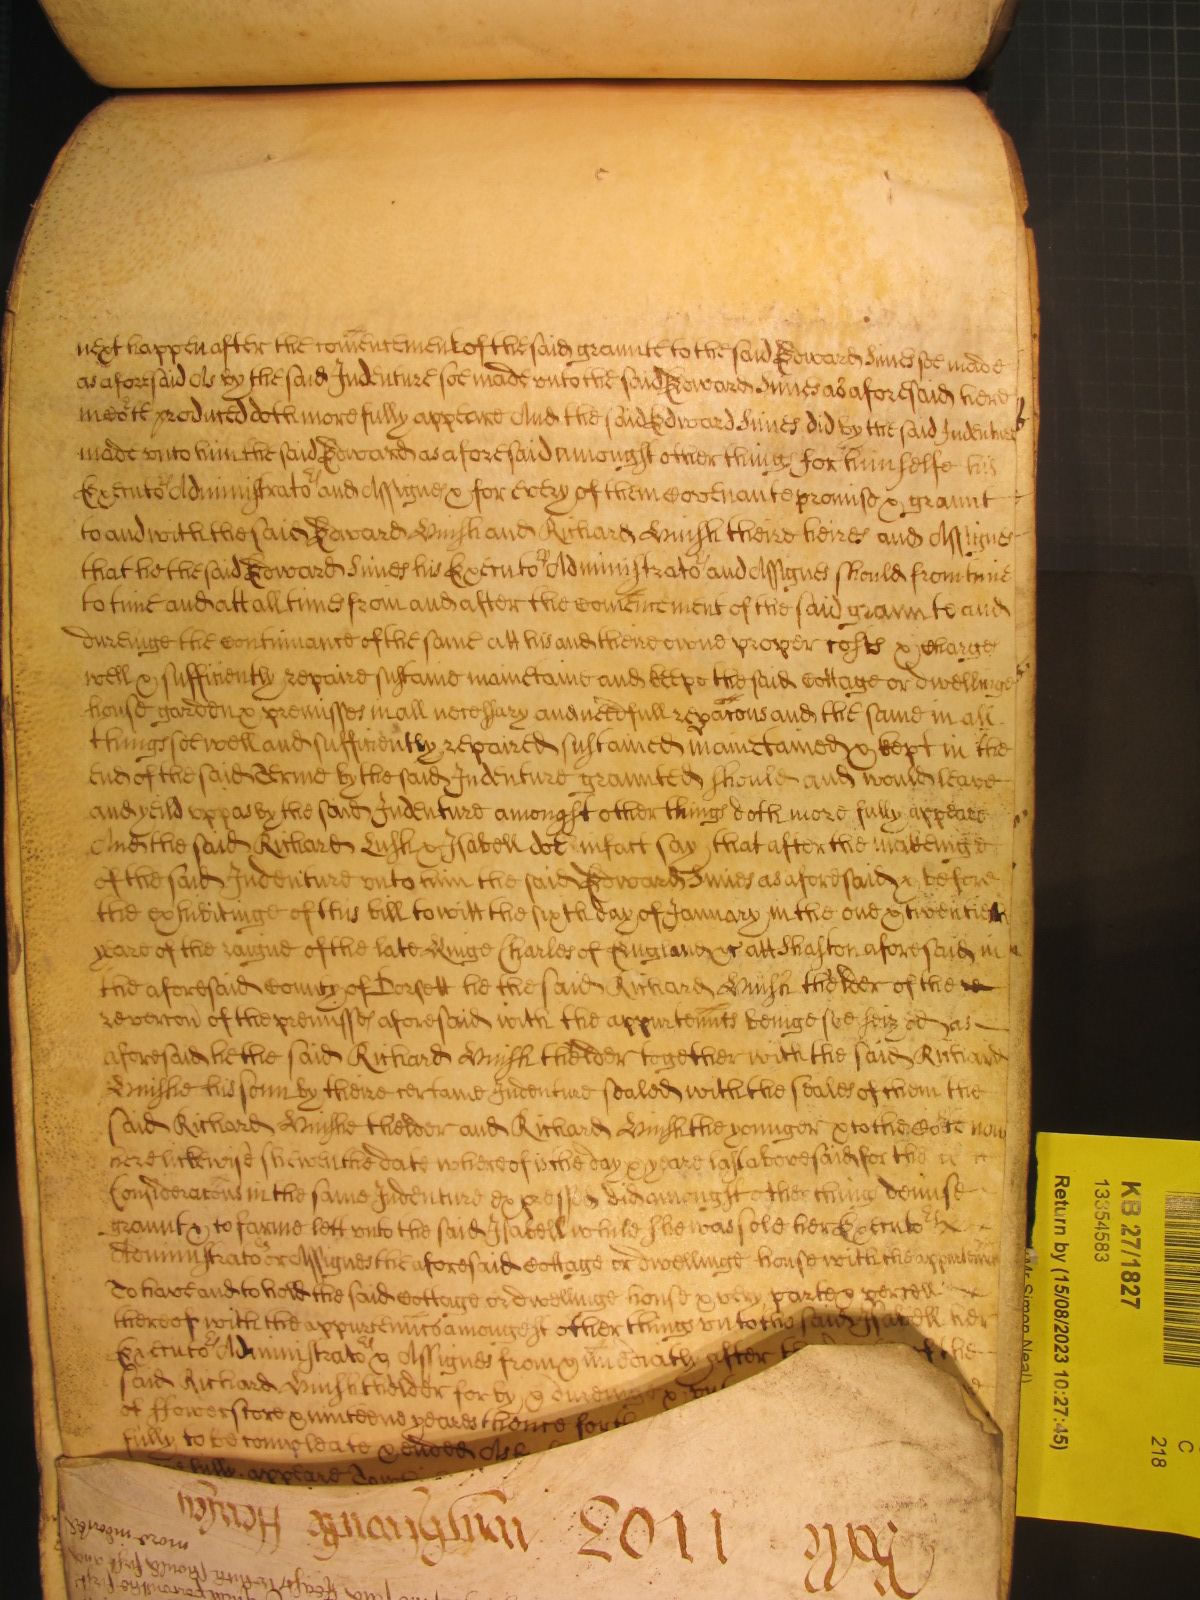 next happen after the comencement of the said graunte to the said Edward Innes soe made
as aforesaid As by the said Indenture soe made unto the said Edward Innes as aforesaid here
in Co:te produced doth more fully appeare And the said Edward Innes did by the said Indenture
made unto him the said Edward as aforesaid amongst other things for himselfe his
Executors Administrators and Assignes & for every of them Covenante promise & graunt
to and with the said Edward Lush and Richard Lush theire heires and Assignes
that he the said Edward Innes his Executors Administrators and Assignes should from time
to time and att all times from and after the Comencement of the said graunte and
dureinge the Continuance of the same att his and theire owne proper costs & Charges
well & sufficiently repaire sustaine mainetaine and keepe the said Cottage or dwellinge
house garden & premisses in all necessary and needfull reparacons and the same in all
things soe well and sufficiently repaired sustained mainetained & kept in the
end of the said Terme by the said Indenture graunted should and would leave
and yeild upp as by the said Indenture amongst other things doth more fully appeare
And the said Richard Lush & Isabell doe in fact say that after the makeinge
of the said Indenture unto him the said Edward Innes as aforesaid & before
the exhibitinge of this bill to witt the sixth day of January in the one & twentieth
yeare of the raigne of the late Kinge Charles of England &c att Shaston aforesaid in
the aforesaid County of Dorsett he the said Richard Lush thelder of the re
revercon of the premisses aforesaid with the appurtennts beinge soe seized as
aforesaid he the said Richard Lush thelder together with the said Richard
Lushe his sonn by theire certaine Indenture sealed with the seales of them the
said Richard Lushe thelder and Richard Lush the younger & to the Co:te now
here likewise shewen the date whereof is the day & yeare last abovesaid for the
Consideracons in the same Indenture expressed did amongst other things demise
graunt & to farme lett unto the said Isabell while she was sole her Executors
Administrators or Assignes the aforesaid Cottage or dwellinge house with the appurtennts
To have and to hold the said Cottage or dwellinge house & every parte & percell
thereof with the appurtennts amongest other things unto the said Isabell her
Executors Administrators & Assignes from & imediatly after the of the
said Richard Lush thelder for by & dureinge &
of ffower score & nineteene yeares thence forth
fully to be compleate & ended As
fully appeare
Rolle 1103
KB 27/1827
13354583
Return by (15/08/2023 10:27:45)
Mr Simon Neal)
C
218